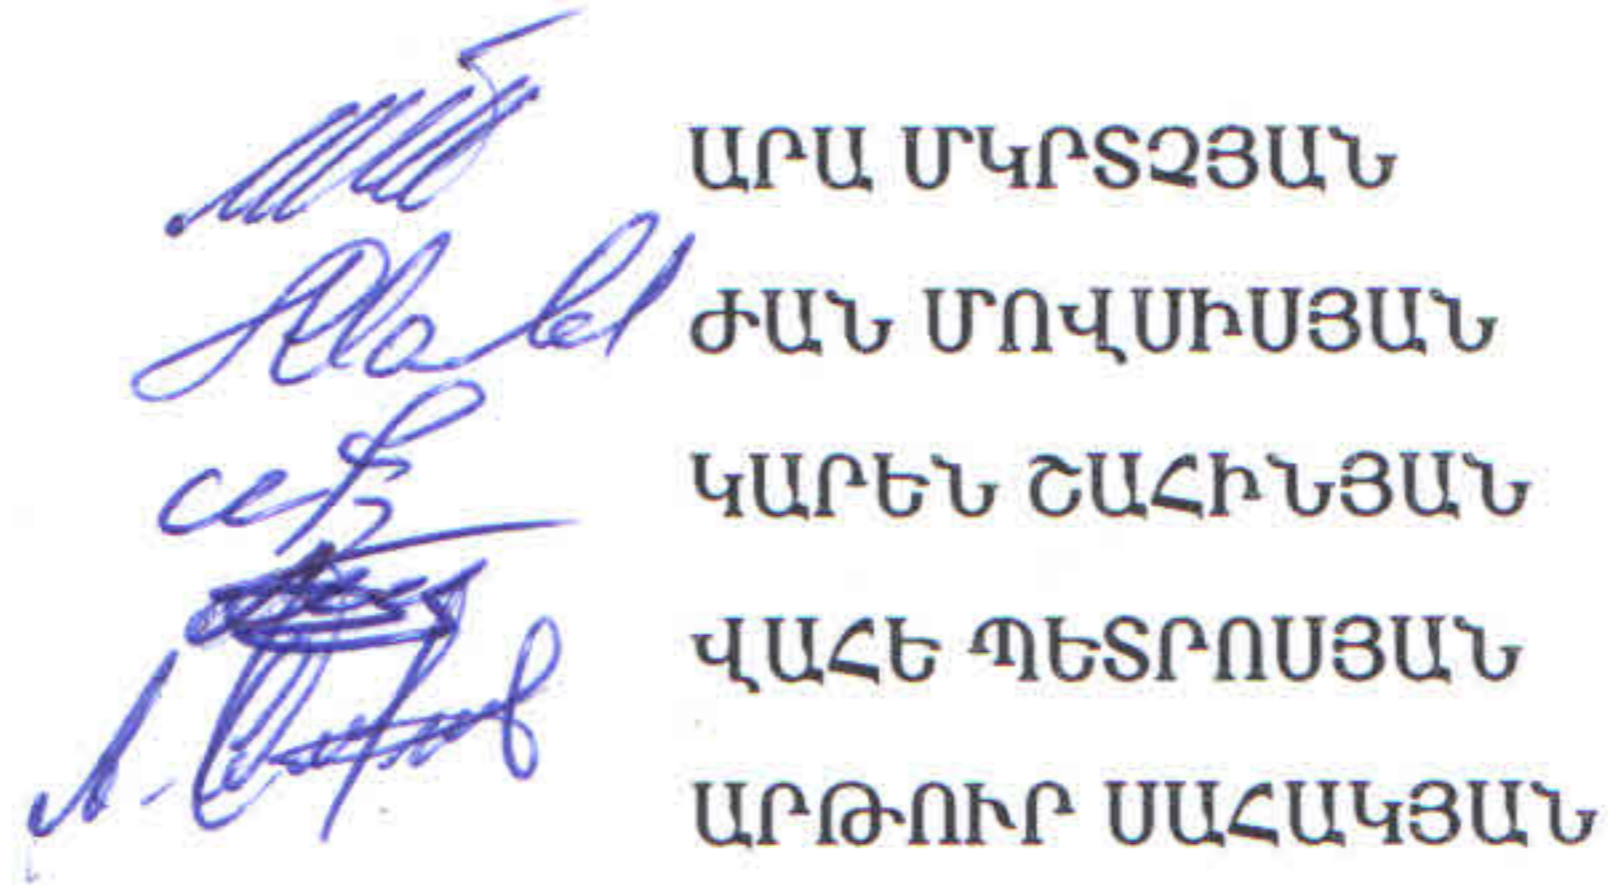 ԱՐԱ ՄԿՐՏՉՅԱՆ
ԺԱՆ ՄՈՎՍԻՍՅԱՆ
ԿԱՐԵՆ ՇԱՀԻՆՅԱՆ
ՎԱՀԵ ՊԵՏՐՈՍՅԱՆ
ԱՐԹՈՒՐ ՍԱՀԱԿՅԱՆ